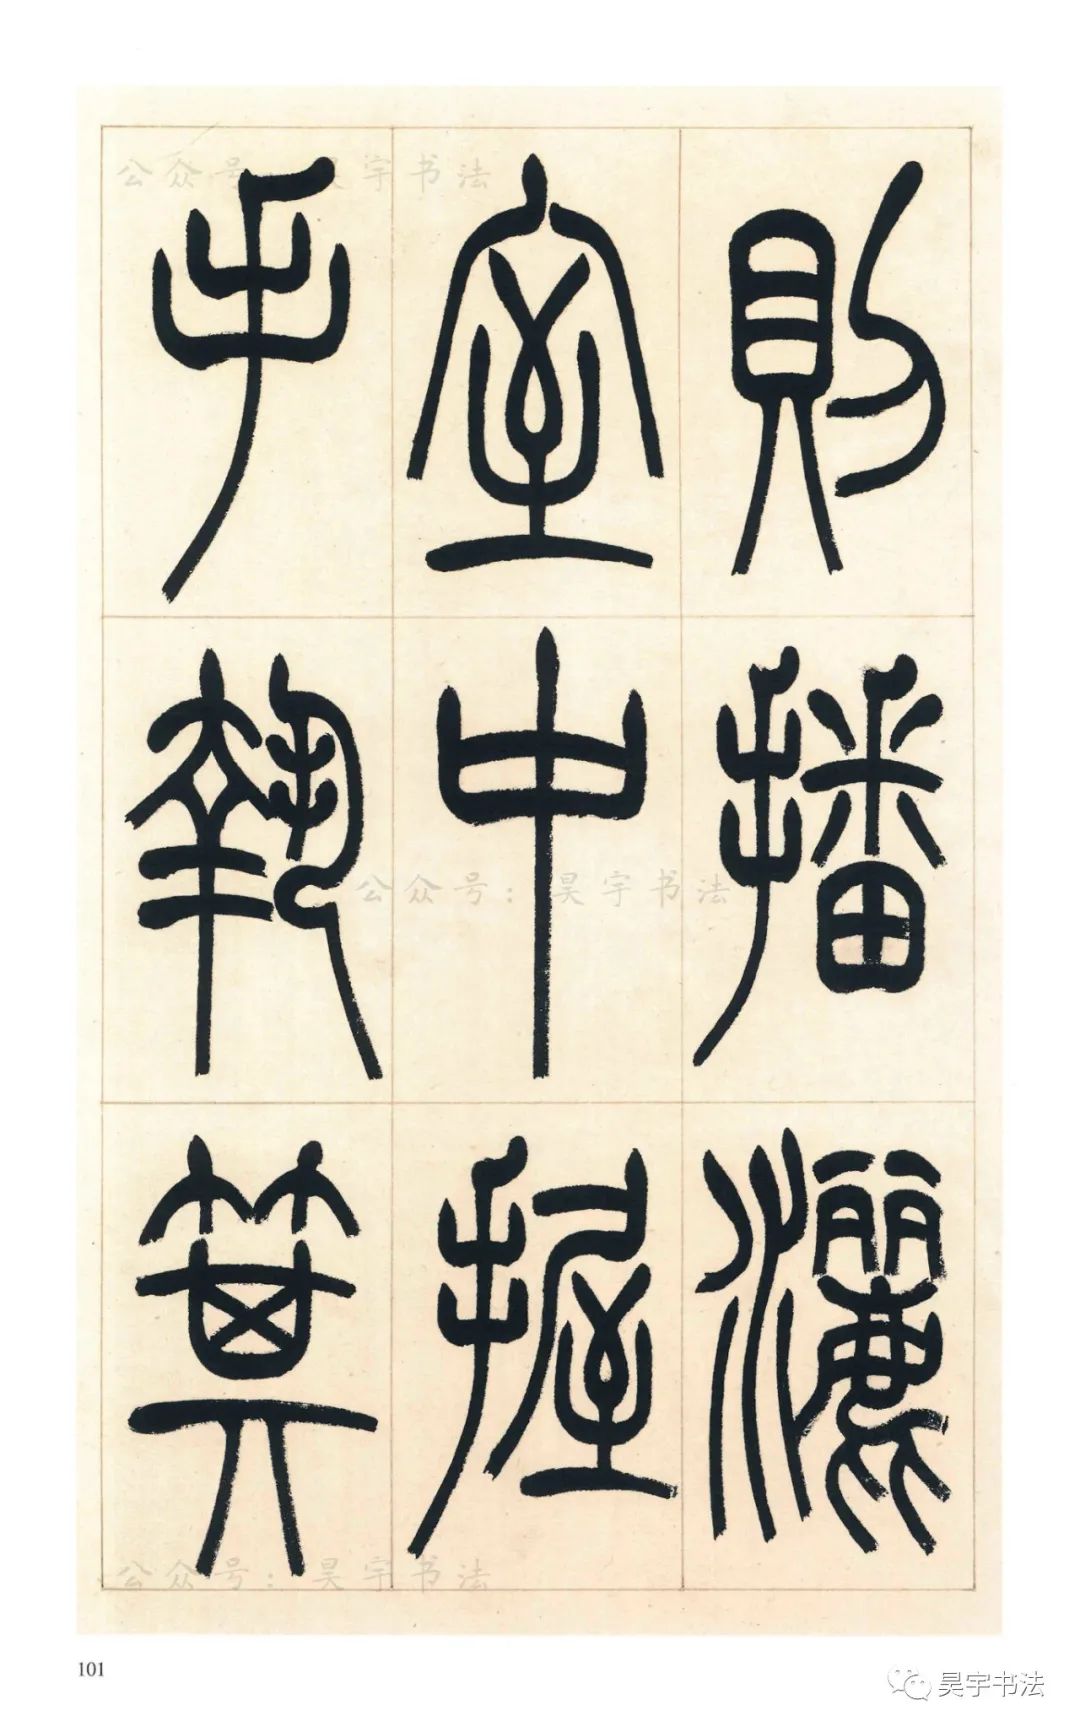 則播灑
室中握
手執箕
公众号：昊宇书法
公众号：昊宇书法
公众号：昊宇书法
101
昊宇书法